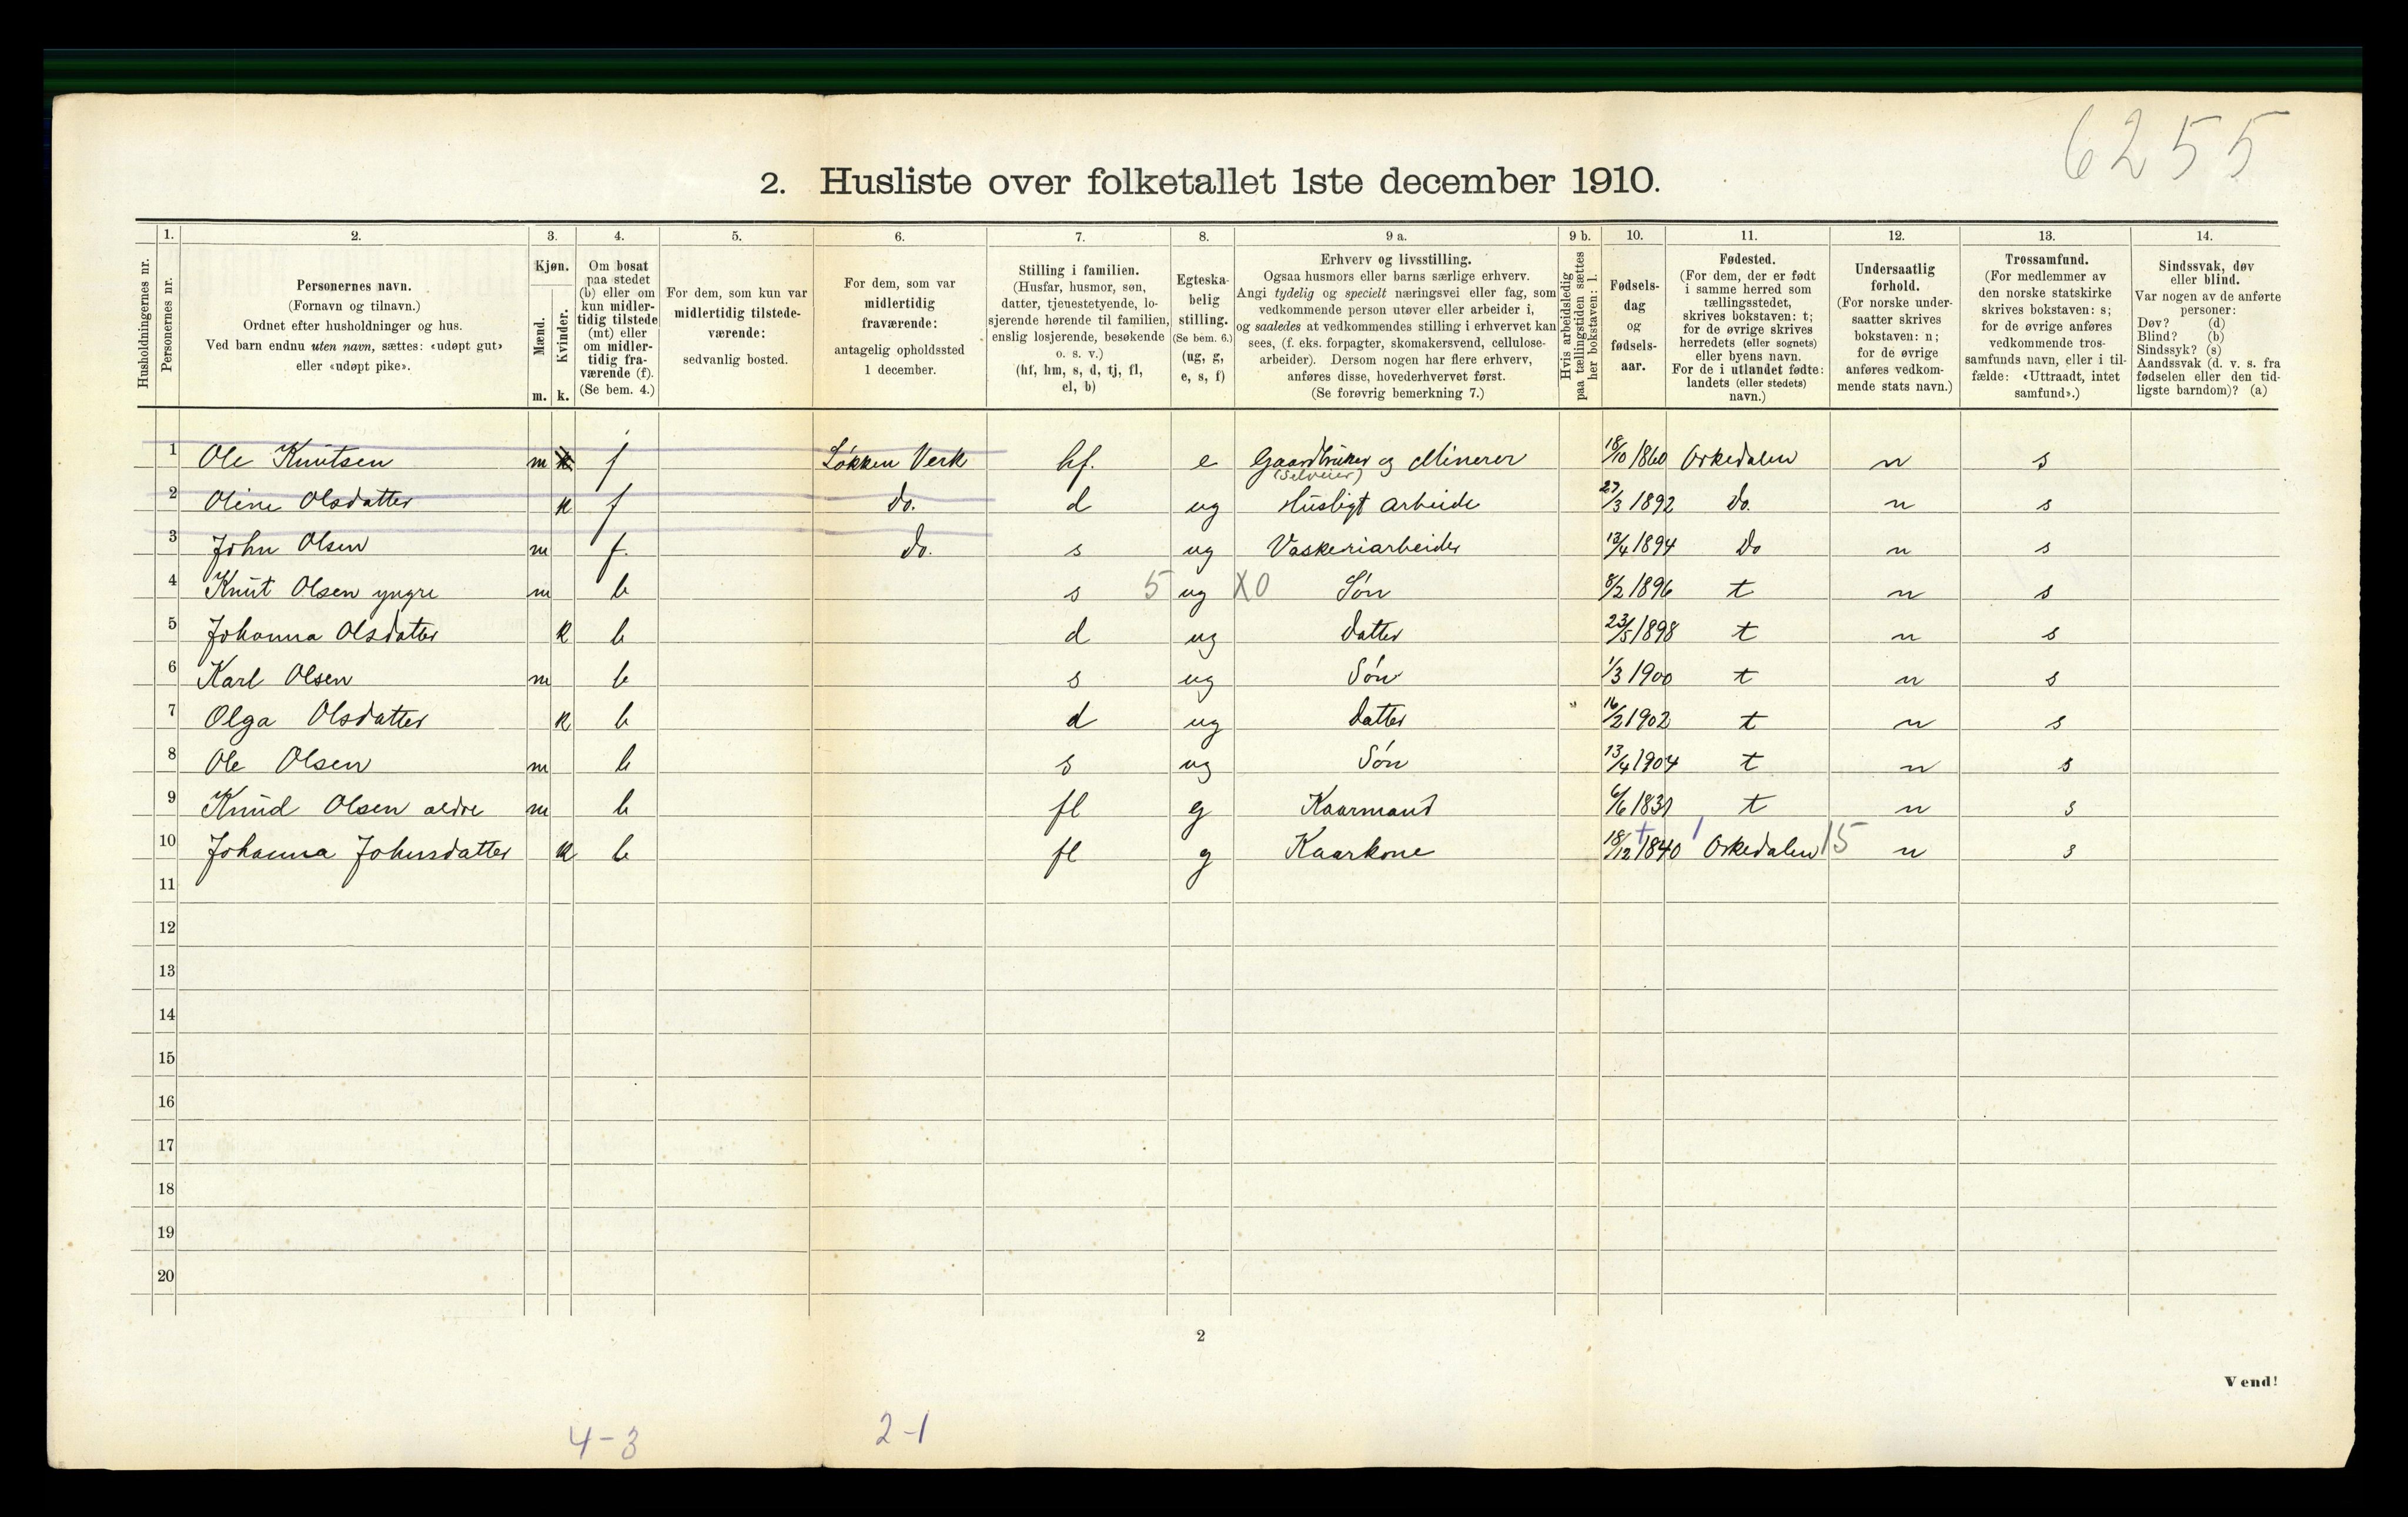 6255
2. Husliste over folketallet 1ste december 1910.
Husholdningernes nr.
1. 2. 3. 4. 5. 6. 7. 8. 9 a. 9 b. 10. 11. 12. 13. 14.
Personernes nr.
Personernes navn.
(Fornavn og tilnavn.)
Ordnet efter husholdninger og hus.
Ved barn endnu uten navn, sættes: «udøpt gut»
eller «udøpt pike».
Kjøn.
Mænd.
Kvinder.
m. k.
Om bosat
paa stedet
(b) eller om
kun midler-
tidig tilstede
(mt) eller
om midler-
tidig fra-
værende (f).
(Se bem. 4.)
For dem, som kun var
midlertidig tilstede-
værende:
sedvanlig bosted.
For dem, som var
midlertidig
fraværende:
antagelig opholdssted
1 december.
Stilling i familien.
(Husfar, husmor, søn,
datter, tjenestetyende, lo-
sjerende hørende til familien,
enslig losjerende, besøkende
o. s. v.)
(hf, hm, s, d, tj, fl,
el, b)
Egteska-
belig
stilling.
(Se bem. 6.)
(ug, g,
e, s, f)
Erhverv og livsstilling.
Ogsaa husmors eller barns særlige erhverv.
Angi tydelig og specielt næringsvei eller fag, som
vedkommende person utøver eller arbeider i,
og saaledes at vedkommendes stilling i erhvervet kan
sees, (f. eks. forpagter, skomakersvend, cellulose-
arbeider). Dersom nogen har flere erhverv,
anføres disse, hovederhvervet først.
(Se forøvrig bemerkning 7.)
Hvis arbeidsledig
paa tællingstiden sættes
her bokstaven: l.
Fødsels-
dag
og
fødsels-
aar.
Fødested.
(For dem, der er født
i samme herred som
tællingsstedet,
skrives bokstaven: t;
for de øvrige skrives
herredets (eller sognets)
eller byens navn.
For de i utlandet fødte:
landets (eller stedets)
navn.)
Undersaatlig
forhold.
(For norske under-
saatter skrives
bokstaven: n;
for de øvrige
anføres vedkom-
mende stats navn.)
Trossamfund.
(For medlemmer av
den norske statskirke
skrives bokstaven: s;
for de øvrige anføres
vedkommende tros-
samfunds navn, eller i til-
fælde: «Uttraadt, intet
samfund».)
Sindssvak, døv
eller blind.
Var nogen av de anførte
personer:
Døv? (d)
Blind? (b)
Sindssyk? (s)
Aandssvak (d. v. s. fra
fødselen eller den tid-
ligste barndom)? (a)
1 Ole Knutsen m k f Løkken Verk hf. e Gaardbruker og Minerer 18/10 1860 Orkedalen n s
(Selveier)
2 Oline Olsdatter k f do. d ug Husligt arbeide 27/3 1892 do. n s
3 John Olsen m f. do. s ug Vaskeriarbeider 13/4 1894 do n s
4 Knut Olsen yngre m b s 5 ug X0 Søn 8/2 1896 t n s
5 Johanna Olsdatter k b d ug datter 23/5 1898 t n s
6 Karl Olsen m b s ug Søn 1/3 1900 t n s
7 Olga Olsdatter k b d ug datter " 16/2 1902 t n s
8 Ole Olsen m b s ug Søn 13/4 1904 t n s
9 Knud Olsen ældre m b fl g Kaarmand 6/6 1831 t n s
10 Johanna Johnsdatter k b fl g Kaarkone 18/12 1840 Orkedalen 15 n s
11
12
13
14
15
16
17
18
19
20
2
Vend!
4-3 2-1